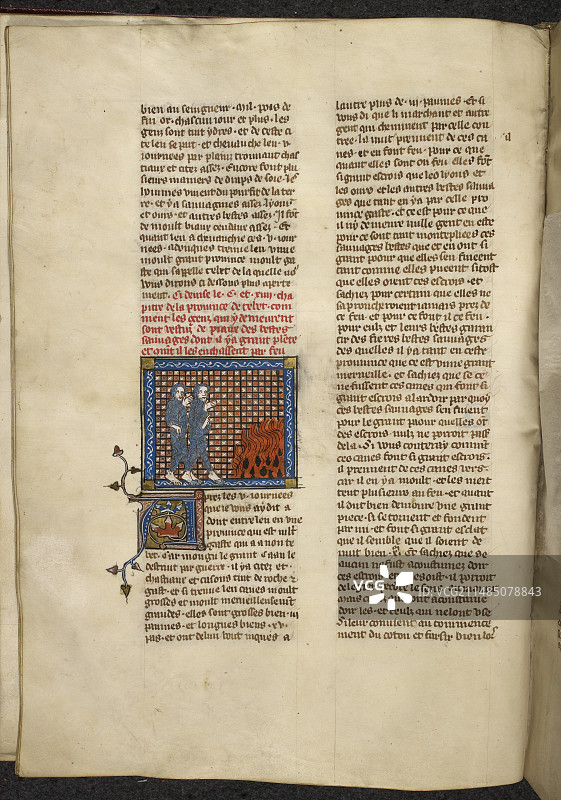 bien au seingneur · mil · pois de
fin or · chascun iour et plus · les
gens sont tuit ydres · et de ceste ci
te len se part · et cheuauche len · v ·
iournees par plain trouuant chas
tiaux et citez assez · Encore font plu
sieurs manieres de draps de soie · les
homes viuent du pourfit de la ter
re · et y a sauuagines assez · lyons
et ours · et autres bestes assez · Il sot
de moult biaux cendaus assez · Et
quant len a cheuauche ces · v · iour
nees · adonques treuue len vne
moult grant prouince moult ga
ste qui sapelle telet de la quelle no9
vous dirons ci dessous plus aperte
ment ·
de la prouince de telet · com
ment les genz qui y demeurent
sont vestuz de piaux des bestes
sauuages dont il y a grant plete
et ont il les enchassent par feu
prez les · v · iournees
que ie vous ay dit a
dont entre len en vne
prouince qui est mlt
gaste qui a a non te
bet · Car mongu le grant Caan le
destruit par guerre · il y a citez et
chastiaux et casons tout de roche z
gast · et si treuue len canes moult
grosses et moult merueilleusement
grandes · elles sont grosses bien · iij
paumes · et longues biens · xv ·
pas · et ont de lun nou iuques a
lautre plus de · iij · paumes · Et si
vous di que li marchant et autre
gent qui cheminent par celle con
tree · la nuit prennent de ces ca
nes · et en font feu · pour ce que
quant elles sont en feu elles fot
si grant escrois que les lyons et
les ours et les autres bestes sauua
ges que tant en y a par celle pro
uince gaste · et ce est pour ce que
il ny demeure nulle gent en este
pour ce sont tant montepliees ces
sauuages bestes que et en ont si
grant poour que elles sen fuient
tant comme elles pueent si tost
que elles oient ces escrois · et
sachiez pour certain que elles ne
saprocheroient iamais prez de
ce feu · et pour ce font il ce feu ·
pour eulz et leurs bestes garan
tir des fieres bestes sauuages
des quelles il y a tant en ceste
prouince que ce est vne grant
merueille · et sachiez que se ce
ne fussent ces canes qui font si
grant escrois al ardoir par quoy
ces bestes sauuages sen fuient
pour le grant poour quelles ont
des escrois · nulz ne porroit pass
dela · Si vous conteray comment
ces canes font si grant escrois ·
il prennent de ces canes vers ·
car il en y a moult · et les met
tent plusieurs au feu · et quant
il ont bien demoure vne grant
piece · si se tornent et fondent
par mi · et font si grant esclat
que il semble que il soient de
nuit bien · Et sachiez que se
aucun nest acoustumez doir
ces escrois
dor les · et ceulz qui ne lont vse
si leur conuient au commence
ment du coton et farsir bien lor
VCG
VCG211485078843